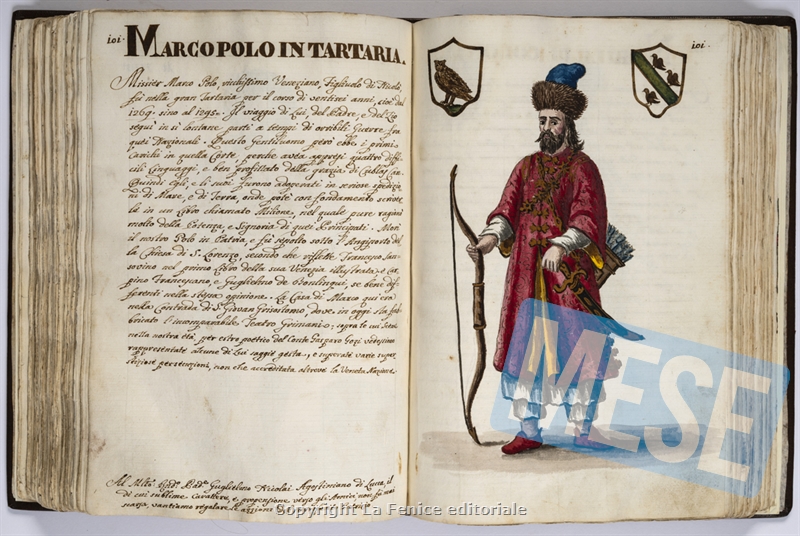 101.
MARCO POLO IN TARTARIA.
Missier Marco Polo, ricchissimo Veneziano, Figliuolo di Nicolò,
fù nella gran Tartaria per il corso di ventisei anni, cioè dal
1269. sino al 1295. Il viaggio di Lui, del Padre, e del Zio
seguì in sì lontane parti a tempi di orribili Guerre fra
quei Nazionali. Questo Gentiluomo però ebbe i primi
Carichi in quella Corte, perche avea appresi quattro diffi-
cili Linguaggi, e ben profittato della grazia di Cublay Can
Quindi Egli, e li suoi furono adoperati in seriose spedizio-
ni di Mare, e di Terra, onde potè con fondamento scrivere
la in un Libro chiamato Milione, nel quale pure ragionò
molto della Potenza, e Signoria di quei Principati. Morì
il nostro Polo in Patria, e fù sepolto sotto l'Angiporto del
la Chiesa di S. Lorenzo, secondo che riflette Francesco San-
sovino nel primo Libro della sua Venezia illustrata;
Francescano, e Guglielmo de
ferenti nella stessa opinione. La Casa di Marco quì era
nella Contrada di S. Giovan Grisostomo, dove in oggi sta fab-
bricato l'incomparabile Teatro Grimani;
nella nostra età per estro poetico del Conte Gasparo Gozi
rappresentate alcune di Lui saggie gesta, e superate varie super
stiziose persecuzioni, non che accreditata oltre la Veneta Nazione.
Guglielmo Nicolai Agostiniano di Lucca, il
di cui sublime Carattere, e propensione verso gli Amici, non fù mai
scarsa, vantiamo
101.
MESE
Copyright La Fenice editoriale